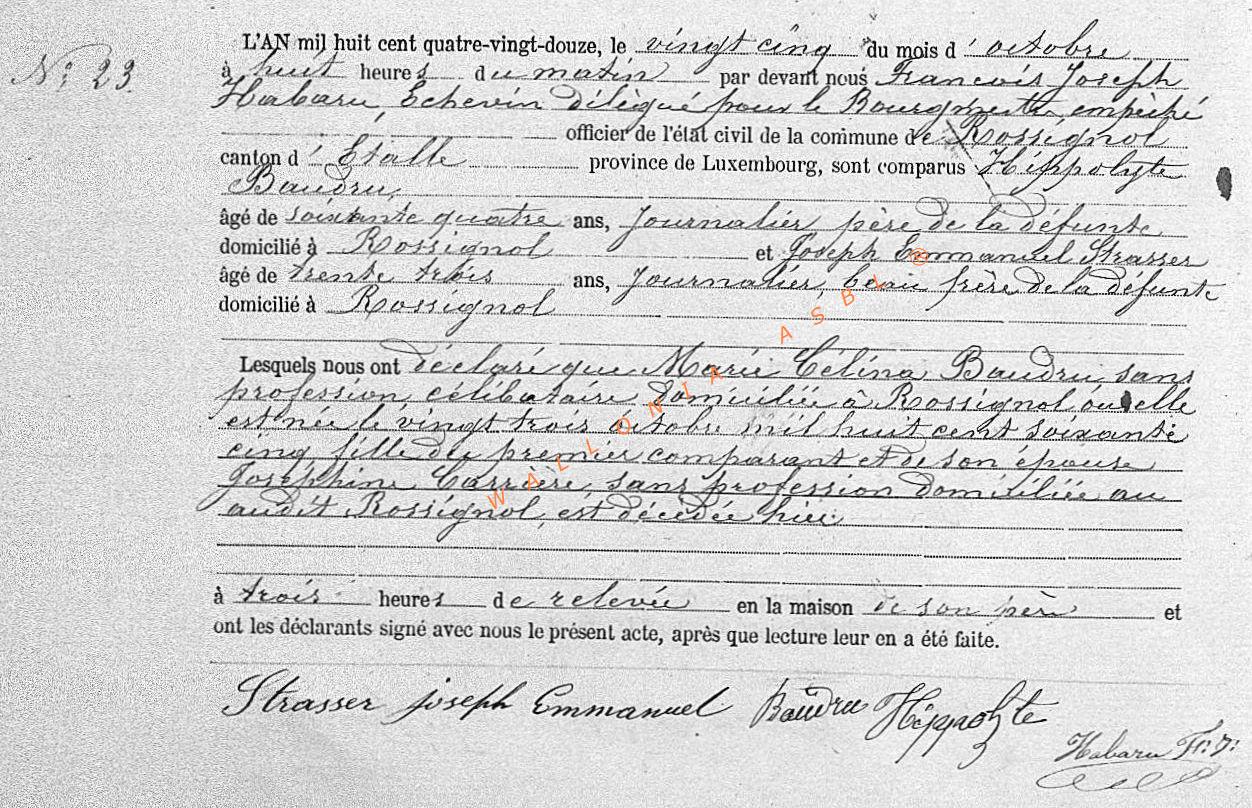 N° 23.
L'AN mil huit cent quatre-vingt-douze, le vingt cinq du mois d'octobre
à huit heures du matin par devant nous Francois Joseph
Habaru, Echevin délégué pour le Bourgmestre empêché
officier de l'état civil de la commune de Rossignol
canton d'Etalle province de Luxembourg, sont comparus Hippolyte
Baudru,
âgé de soixante quatre ans, Journalier, père de la défunte
domicilié à Rossignol et Joseph Emmanuel Strasser
âgé de trente trois ans, Journalier, beau frère de la défunte
domicilié à Rossignol
Lesquels nous ont déclaré que Marie Célina Baudru, sans
profession, célibataire, domiciliée à Rossignol ou elle
est née le vingt trois octobre mil huit cent soixante
cinq fille du premier comparant et de son épouse
Joséphine Carrière, sans profession domiciliée au
audit Rossignol, est décédée hier
à trois heures de relevée en la maison de son père et
ont les déclarants signé avec nous le présent acte, après que lecture leur en a été faite.
Strasser joseph Emmanuel Baudru Hippolyte
Habaru Fr. J.
WALLONIA ASBL ®